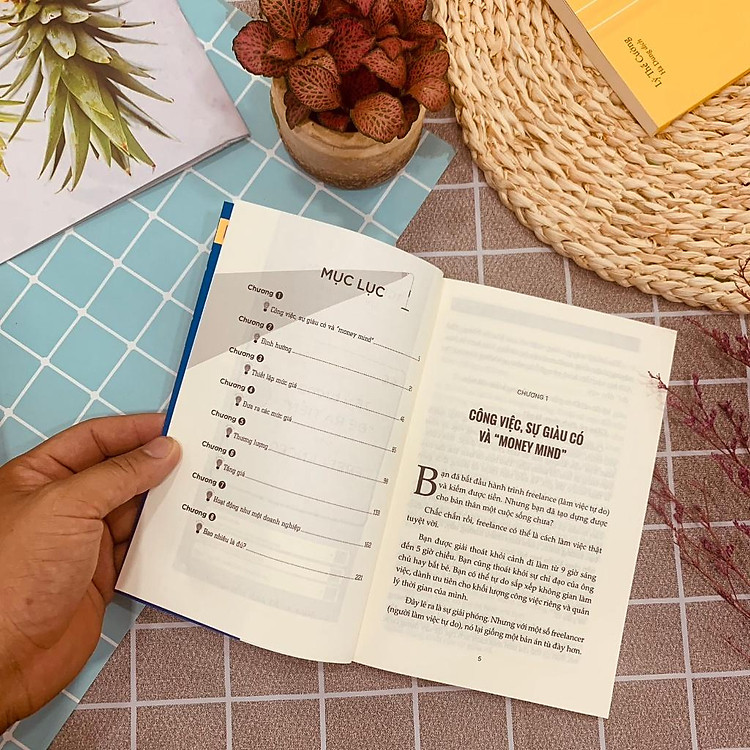 Lý Thế Cường
Hà Dung dịch
MỤC LỤC
Chương 1
Công việc, sự giàu có và "money mind"
Chương 2
Định hướng
Chương 3
Thiết lập mức giá
Chương 4
Đưa ra các mức giá
Chương 5
Thương lượng
Chương 6
Tăng giá
Chương 7
Hoạt động như một doanh nghiệp
162
Chương 8
Bao nhiêu là đủ?
221
CHƯƠNG 1
CÔNG VIỆC, SỰ GIÀU CÓ
VÀ "MONEY MIND"
Bạn đã bắt đầu hành trình freelance (làm việc tự do)
và kiếm được tiền. Nhưng bạn đã tạo dựng được
cho bản thân một cuộc sống chưa?
Chắc chắn rồi, freelance có thể là cách làm việc thật
tuyệt vời.
Bạn được giải thoát khỏi cảnh đi làm từ 9 giờ sáng
đến 5 giờ chiều. Bạn cũng thoát khỏi sự chỉ đạo của ông
chủ hay bắt bẻ. Bạn có thể tự do sắp xếp không gian làm
việc, dành ưu tiên cho khối lượng công việc riêng và quản
lý thời gian của mình.
Đây lẽ ra là sự giải phóng. Nhưng với một số freelancer
(người làm việc tự do), nó lại giống một bản án tù đày hơn.
5